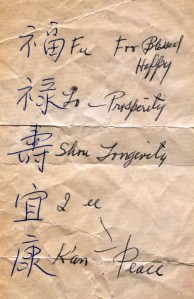 福 Fu For Blessed
Happy
禄 Lo - Prosperity
壽 Shou Longevity
宜 I
康 Kan Peace